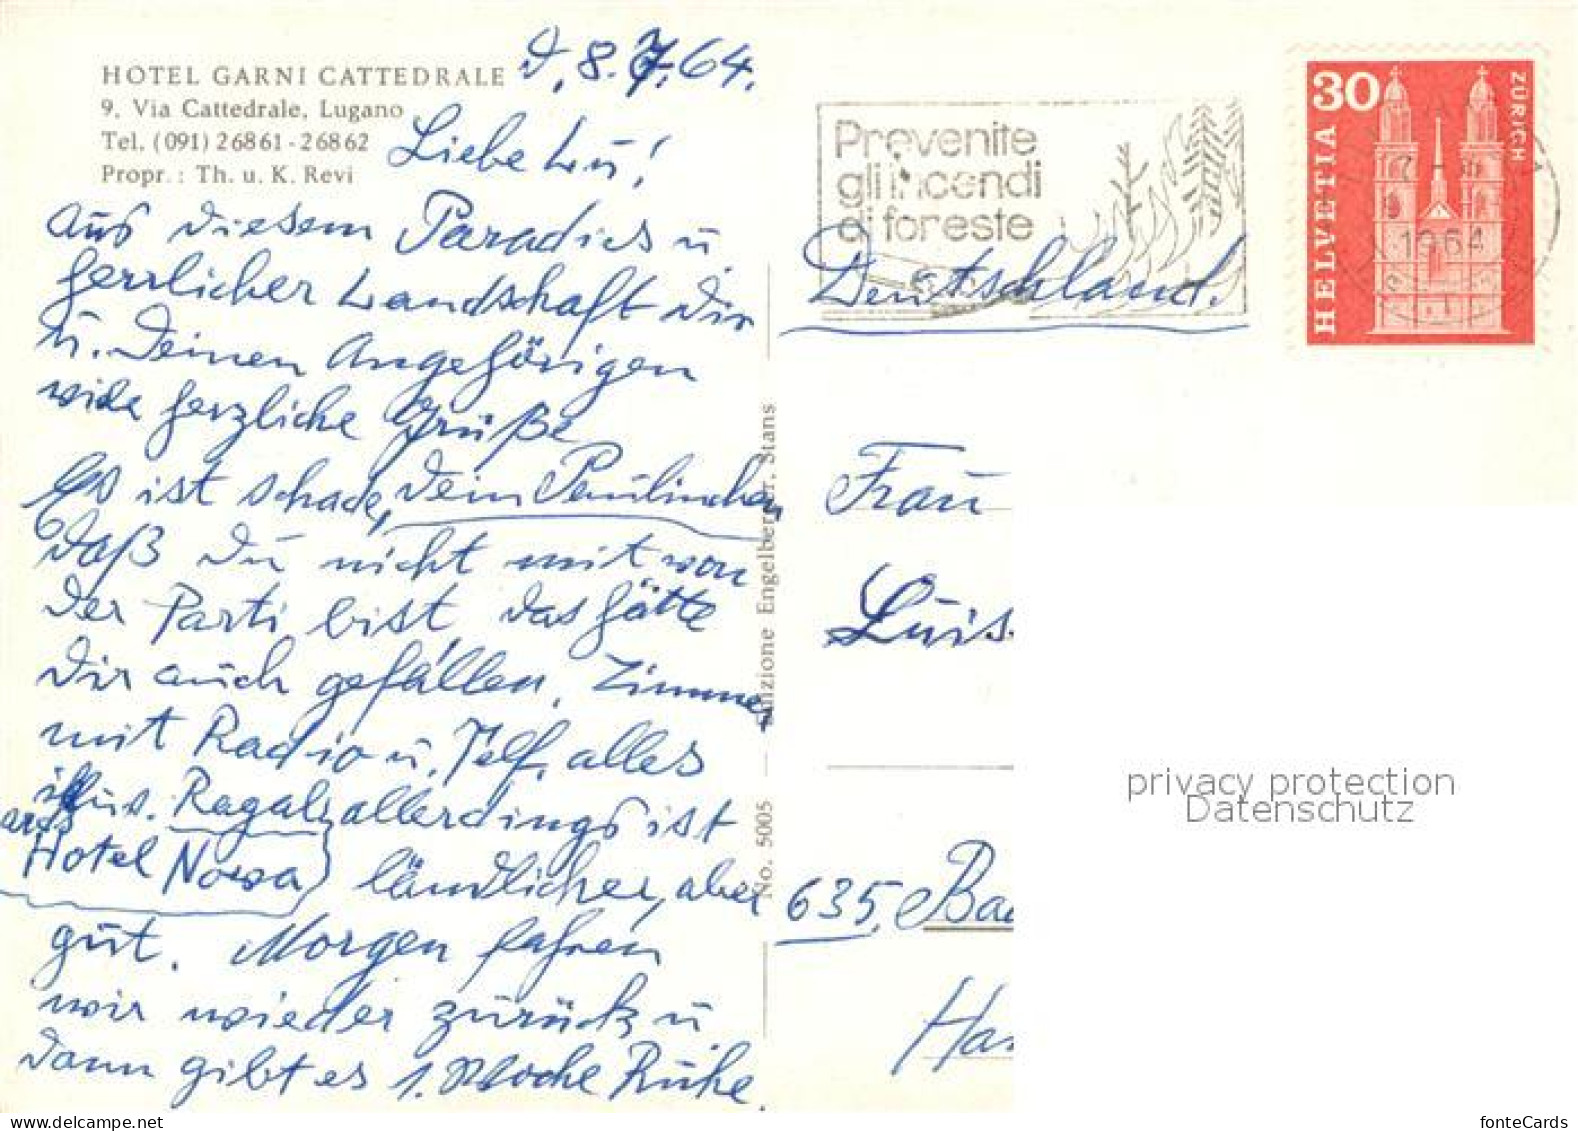 HOTEL GARNI CATTEDRALE
9, Via Cattedrale, Lugano
Tel. (091) 26861 - 26862
Propr.: Th. u. K. Revi
d. 8. 7. 64.
Liebe Lu!
Aus diesem Paradies u
herrlicher Landschaft dir
u. Deinen Angehörigen
viele herzliche Grüße
dein Paulinchen
Es ist schade,
daß Du nicht mit von
der Parti bist, das hätte
dir auch gefallen, Zimmer
mit Radio u. Telf. alles
Ragalz allerdings ist
Hotel Nova
ländlicher, aber
gut. Morgen fahren
wir wieder zurück u
dann gibt es 1. Woche Ruhe.
No. 5005 Edizione Engelberger, Stans
Prevenite
gli incendi
di foreste
30
HELVETIA
ZÜRICH
1964
Deutschland.
Frau
Luis
635, Bad
Han
privacy protection
Datenschutz
fonteCards